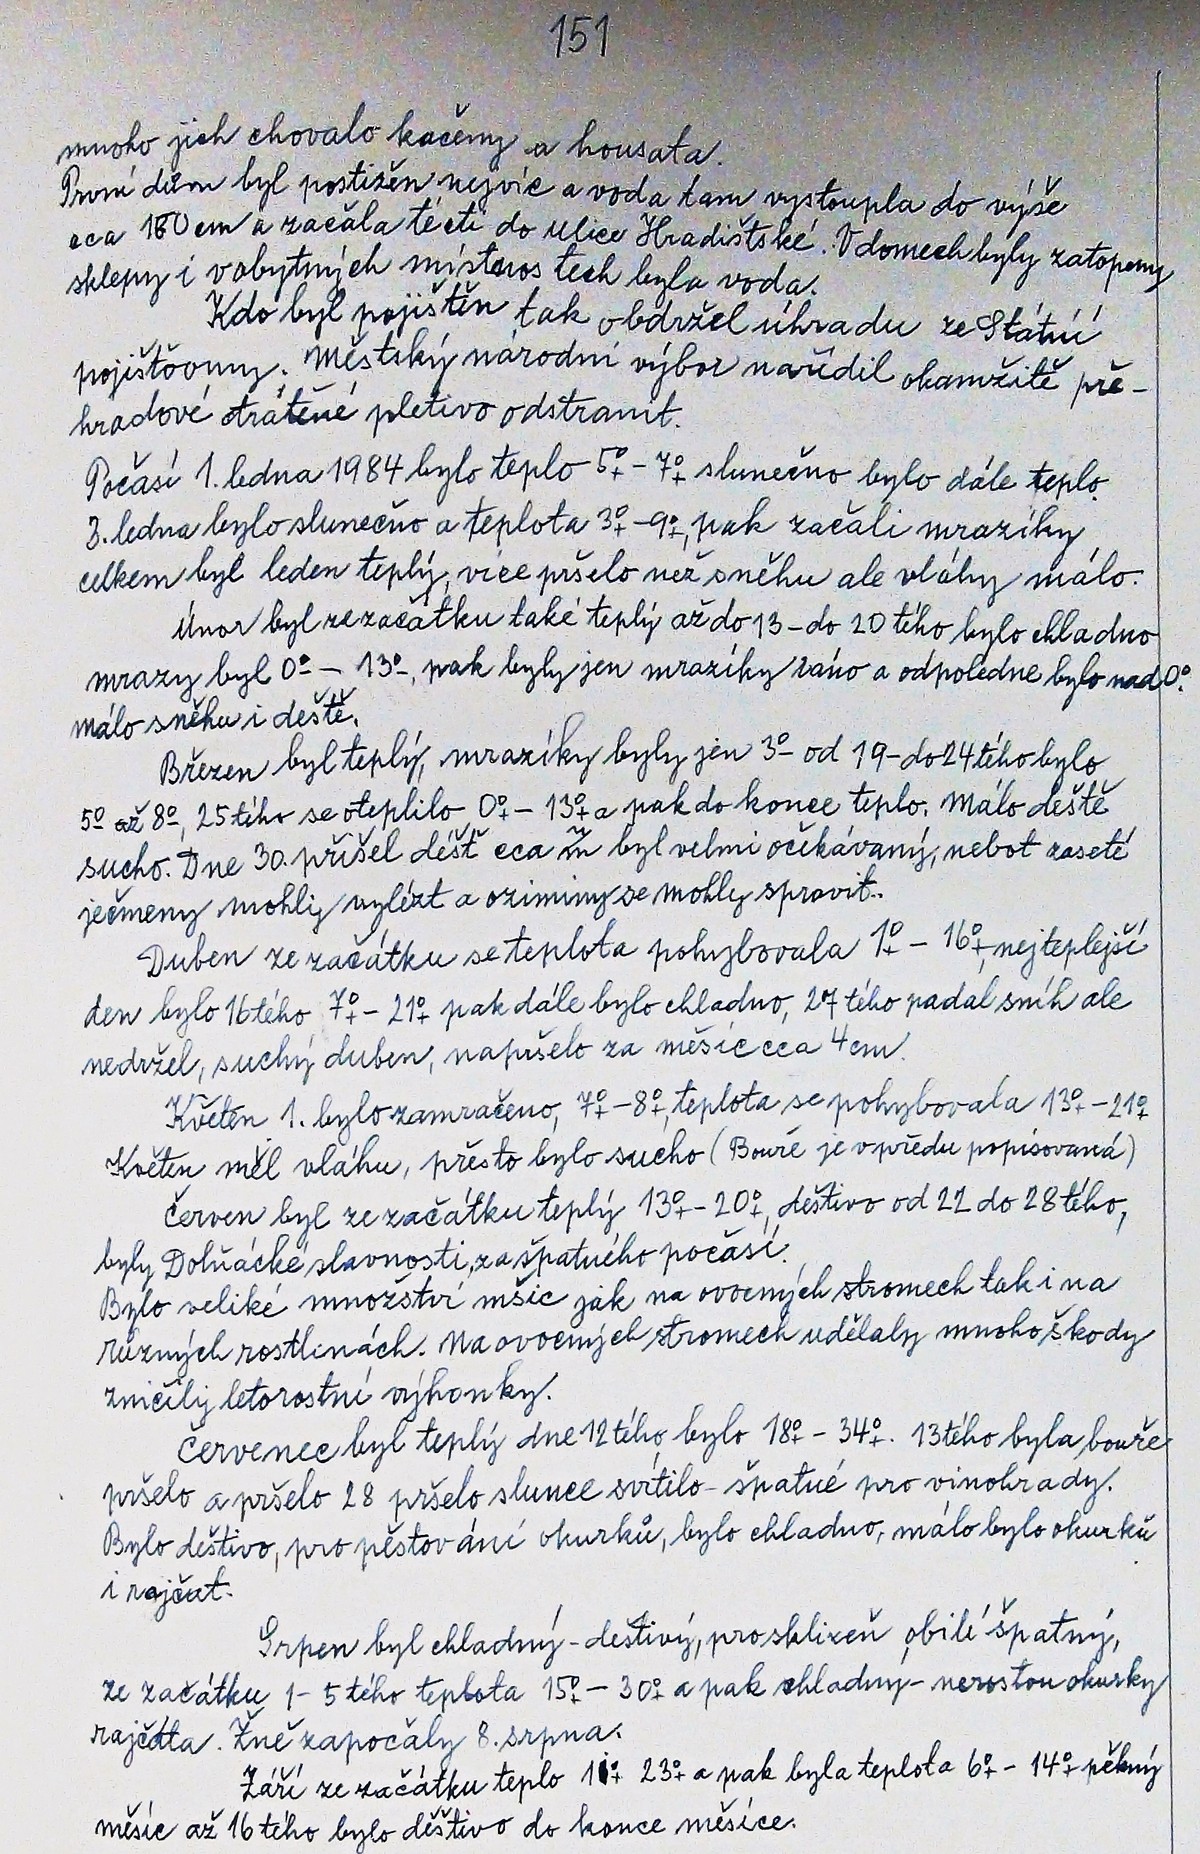 151
mnoho jich chovalo kačeny a housata.
První dům byl postižen nejvíc a voda tam vystoupla do výše
cca 180 cm a začala técti do ulice Hradištské. V domech byly zatopeny
sklepy i v obytných místnostech byla voda.
Kdo byl pojištěn tak obdržel úhradu ze Státní
pojišťovny. Městský národní výbor nařídil okamžitě pře-
hradové drátěné pletivo odstranit.
Počasí 1. ledna 1984 bylo teplo 5º+ - 7º+ slunečno bylo dále teplo.
3. ledna bylo slunečno a teplota 3º+ - 9º+, pak začali mrazíky
celkem byl leden teplý, více pršelo než sněhu ale vláhy málo.
Únor byl ze začátku také teplý až do 13 - do 20 tého bylo chladno
mrazy byl 0º - 13º-, pak byly jen mrazíky ráno a odpoledne bylo nad 0º.
málo sněhu i deště.
Březen byl teplý, mrazíky byly jen 3º- od 19 - do 24 tého bylo
5º až 8º-, 25 tého se oteplilo 0º+ - 13º+ a pak do konce teplo. Málo deště
sucho. Dne 30. přišel déšť cca byl velmi očekávaný, neboť zaseté
ječmeny mohly vylézt a oziminy se mohly spravit.
Duben ze začátku se teplota pohybovala 1º+ - 16º+, nejteplejší
den bylo 16 tého 7º+ - 21º+ pak dále bylo chladno, 27 tého padal sníh ale
nedržel, suchý duben, napršelo za měsíc cca 4 cm.
Květen 1. bylo zamračeno, 7º+ - 8º+, teplota se pohybovala 13º+ - 21º+
Květen měl vláhu, přesto bylo sucho (Bouře je v předu popisovaná)
Červen byl ze začátku teplý 13º+ - 20º+, deštivo od 22 do 28 tého,
byly Dolňácké slavnosti, za špatného počasí.
Bylo veliké množství mšic jak na ovocných stromech tak i na
různých rostlinách. Na ovocných stromech udělaly mnoho škody
zničily letorostní výhonky.
Červenec byl teplý dne 12 tého bylo 18º+ - 34º+. 13 tého byla bouře
pršelo a pršelo 28 pršelo slunce svítilo - špatné pro vinohrady.
Bylo deštivo, pro pěstování okurků, bylo chladno, málo bylo okurků
i rajčat.
Srpen byl chladný - deštivý, pro sklizeň obilí špatný,
ze začátku 1 - 5 tého teplota 15º+ - 30º+ a pak chladný - nerostou okurky
rajčata. Žně započaly 8. srpna.
Září ze začátku teplo 11º+ 23º+ a pak byla teplota 6º+ - 14º+ pěkný
měsíc až 16 tého bylo deštivo do konce měsíce.